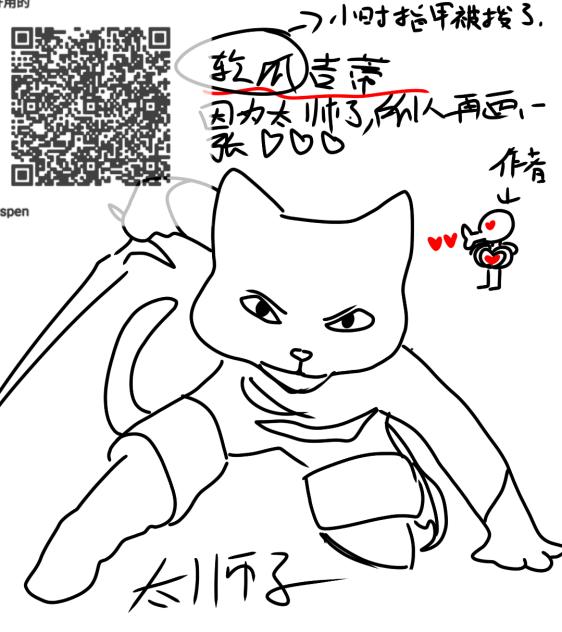 用的
小时指甲被拔了.
软爪吉蒂
因为太帅了,所以再画一
张♡♡♡
作者
spen
太帅了